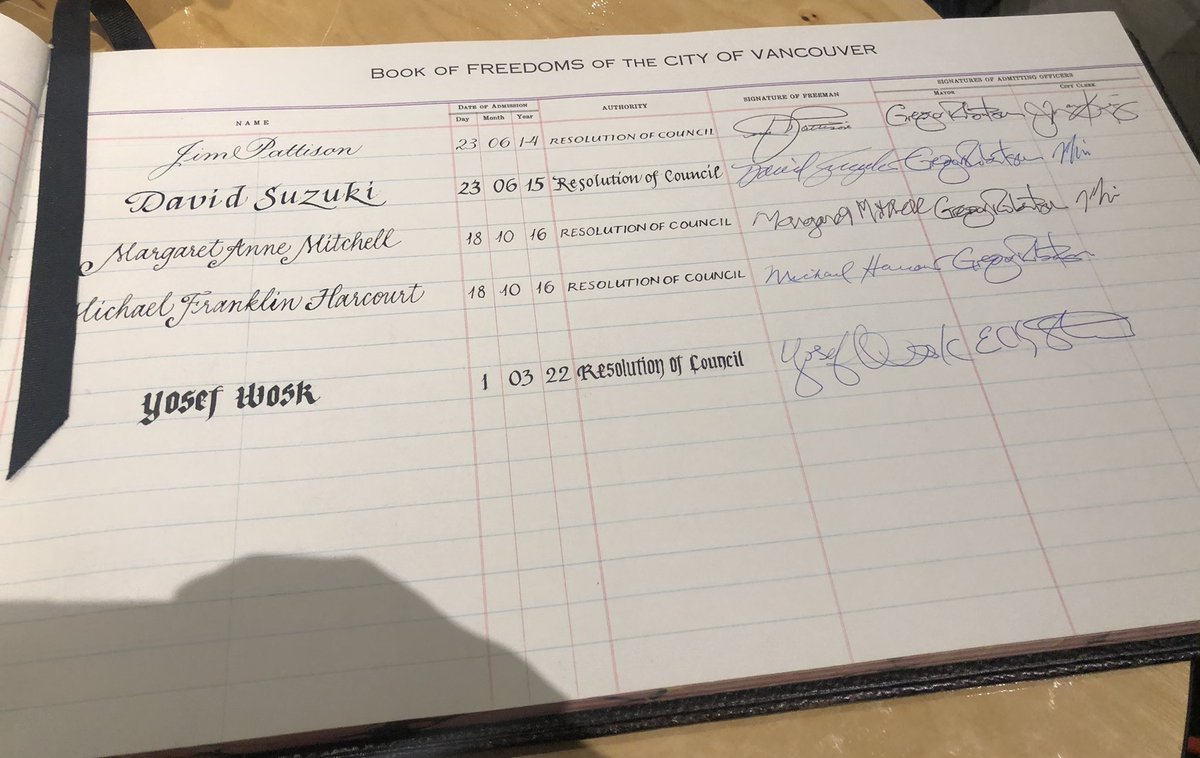 BOOK OF FREEDOMS OF THE CITY OF VANCOUVER
NAME DATE OF ADMISSION AUTHORITY SIGNATURE OF FREEMAN SIGNATURES OF ADMITTING OFFICERS
Day Month Year MAYOR CITY CLERK
Jim Pattison 23 06 14 RESOLUTION OF COUNCIL J Pattison Gregor Robertson
David Suzuki 23 06 15 Resolution of Council David Suzuki Gregor Robertson
Margaret Anne Mitchell 18 10 16 RESOLUTION OF COUNCIL Margaret Mitchell Gregor Robertson
Michael Franklin Harcourt 18 10 16 RESOLUTION OF COUNCIL Michael Harcourt Gregor Robertson
Yosef Wosk 1 03 22 Resolution of Council Yosef Wosk